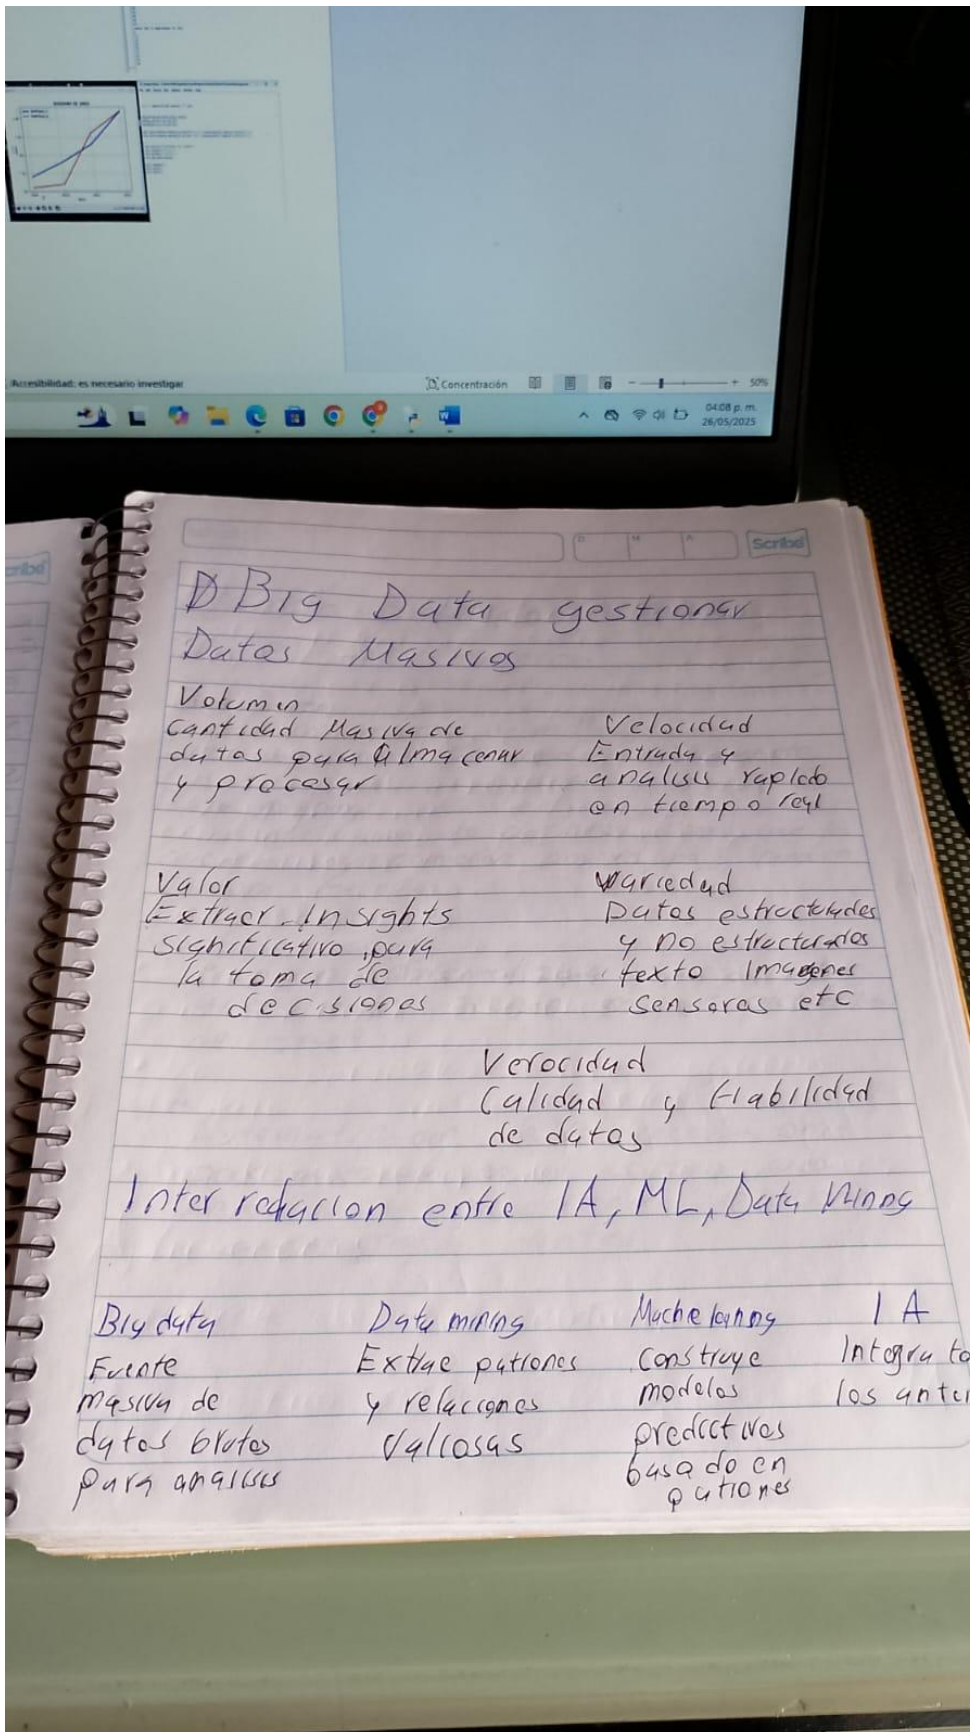 Accesibilidad: es necesario investigar
Concentración
50%
04:08 p. m.
26/05/2025
cribe
D M A
Scribe
Big Data gestionar
Datos Masivos
Volumen
Cantidad Masiva de
datos para almacenar
y procesar
Velocidad
Entrada y
analisis rapido
en tiempo real
Valor
Extraer Insights
significativo para
la toma de
decisiones
Variedad
Datos estructurados
y no estructurados
texto Imagenes
sensoras etc
Verocidad
Calidad y fiabilidad
de datos
Inter relacion entre IA, ML, Data Mining
Big data
Fuente
masiva de
datos brutos
para analisis
Data mining
Extrae patrones
y relaciones
Valiosas
Machelearning
construye
modelos
predictivos
basado en
patrones
IA
Integra to
los anter